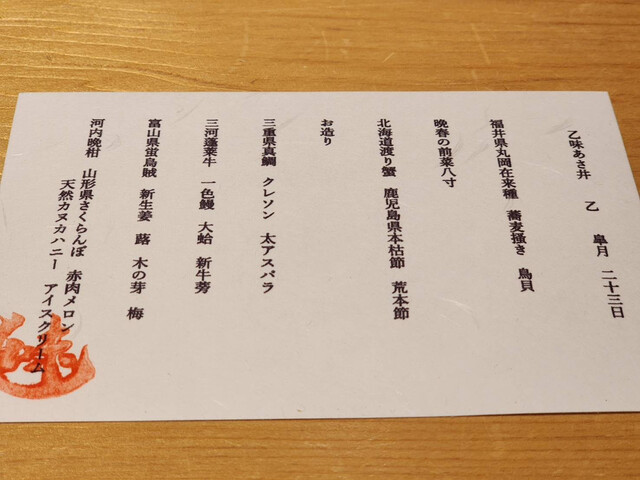 乙味あさ井　乙　皐月　二十三日
福井県丸岡在来種　蕎麦掻き　鳥貝
晩春の前菜八寸
北海道渡り蟹　鹿児島県本枯節　荒本節
お造り
三重県真鯛　クレソン　太アスパラ
三河蓬莱牛　一色鰻　大蛤　新牛蒡
富山県蛍烏賊　新生姜　蕗　木の芽　梅
河内晩柑　山形県さくらんぼ　赤肉メロン
天然カヌカハニー　アイスクリーム